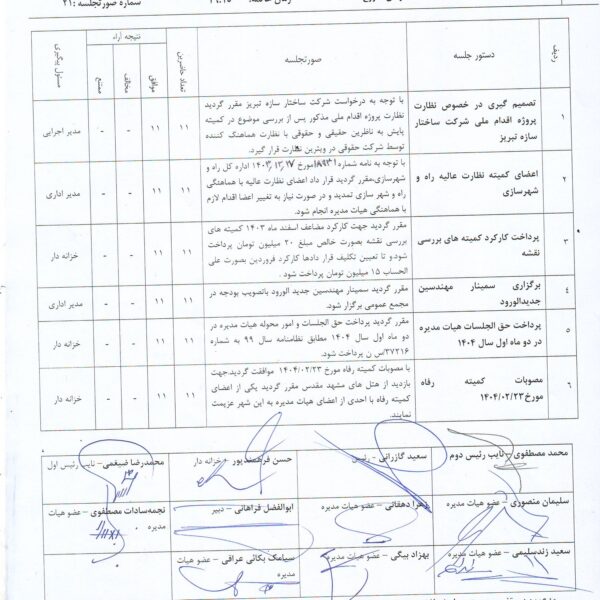 شماره صورتجلسه :۲۱
ردیف
دستور جلسه
صورتجلسه
تعداد حاضرین
نتیجه آراء
موافق
مخالف
ممتنع
مسئول پیگیری
۱
تصمیم گیری در خصوص نظارت
پروژه اقدام ملی شرکت ساختار
سازه تبریز
با توجه به درخواست شرکت ساختار سازه تبریز مقرر گردید
نظارت پروژه اقدام ملی مذکور پس از بررسی موضوع در کمیته
پایش به ناظرین حقیقی و حقوقی با نظارت هماهنگ کننده
توسط شرکت حقوقی در ویترین نظارت قرار گیرد.
۱۱
۱۱
-
-
مدیر اجرایی
۲
اعضای کمیته نظارت عالیه راه و
شهرسازی
با توجه به نامه شماره
مورخ
اداره کل راه و
شهرسازی،مقرر گردید قرار داد اعضای نظارت عالیه با هماهنگی
راه و شهر سازی تمدید و در صورت نیاز به تغییر اعضا اقدام لازم
با هماهنگی هیات مدیره انجام شود.
۱۱
۱۱
-
-
مدیر اداری
۳
پرداخت کارکرد کمیته های بررسی
نقشه
مقرر گردید جهت کارکرد مضاعف اسفند ماه ۱۴۰۳ کمیته های
بررسی نقشه بصورت خالص مبلغ ۲۰ میلیون تومان پرداخت
شود.و تا تعیین تکلیف قرار دادها کارکرد فروردین بصورت علی
الحساب ۱۵ میلیون تومان پرداخت شود .
۱۱
۱۱
-
-
خزانه دار
۴
برگزاری سمینار مهندسین
جدیدالورود
مقرر گردید سمینار مهندسین جدید الورود باتصویب بودجه در
مجمع عمومی برگزار شود.
۱۱
۱۱
-
-
مدیر اداری
۵
پرداخت حق الجلسات هیات مدیره
در دو ماه اول سال ۱۴۰۴
مقرر گردید پرداخت حق الجلسات و امور محوله هیات مدیره در
دو ماه اول سال ۱۴۰۴ مطابق نظامنامه سال ۹۹ به شماره
۳۷۲۱۶/س ن پرداخت شود.
۱۱
۱۱
-
-
خزانه دار
۶
مصوبات کمیته رفاه
مورخ۱۴۰۴/۰۲/۲۳
با مصوبات کمیته رفاه مورخ ۱۴۰۴/۰۲/۲۳ موافقت گردید.جهت
بازدید از هتل های مشهد مقدس مقرر گردید یکی از اعضای
کمیته رفاه با احدی از اعضای هیات مدیره به این شهر عزیمت
نمایند.
۱۱
۱۱
-
-
خزانه دار
محمد مصطفوی – نایب رئیس دوم
سعید گازرانی – رئیس
حسن فرهمندپور – خزانه دار
محمدرضا ضیغمی – نایب رئیس اول
سلیمان منصوری – عضو هیات مدیره
زهرا دهقانی – عضو هیات مدیره
ابوالفضل فراهانی – دبیر
نجمه‌سادات مصطفوی – عضو هیات
مدیره
سعید زندسلیمی – عضو هیات مدیره
بهزاد بیگی – عضو هیات مدیره
سیامک بکائی عراقی – عضو هیات
مدیره